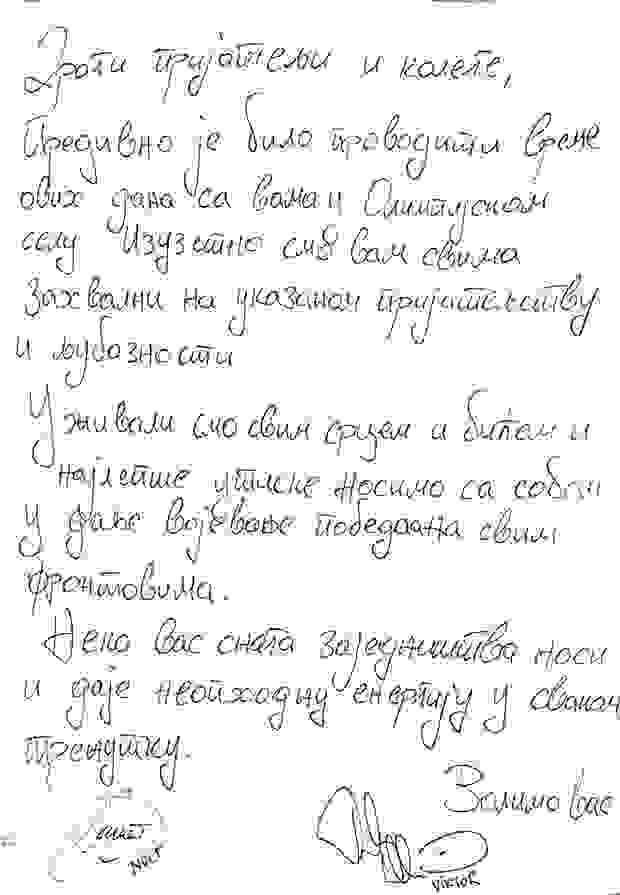 Драги пријатељи и колеге,
Предивно је било проводити време
ових дана са вама у Олимпијском
селу Изузетно смо вам свима
захвални на указаном пријатељству
и љубазности
Уживали смо свим срцем и бићем и
најлепше утиске носимо са собом
у даље војевање победа на свим
фронтовима.
Нека вас снага заједништва носи
и даје неопходну енергију у сваком
тренутку.
Волимо вас
NOLE
VIKTOR